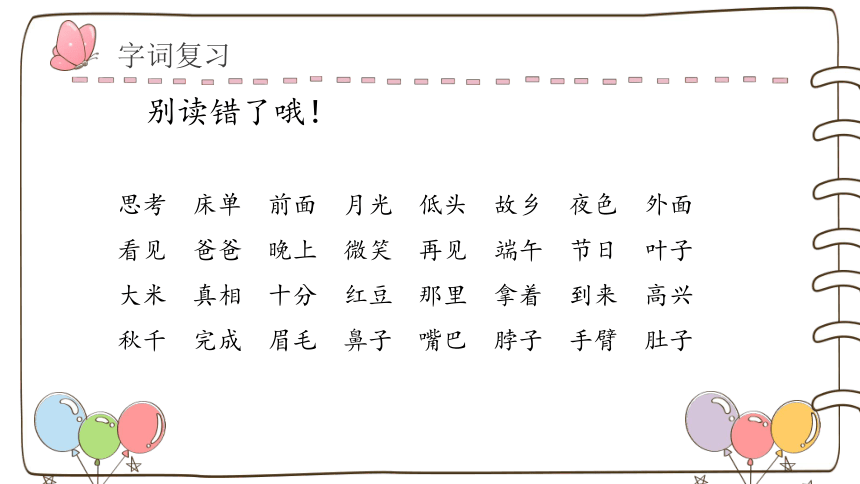 字词复习
别读错了哦!
思考 床单 前面 月光 低头 故乡 夜色 外面
看见 爸爸 晚上 微笑 再见 端午 节日 叶子
大米 真相 十分 红豆 那里 拿着 到来 高兴
秋千 完成 眉毛 鼻子 嘴巴 脖子 手臂 肚子